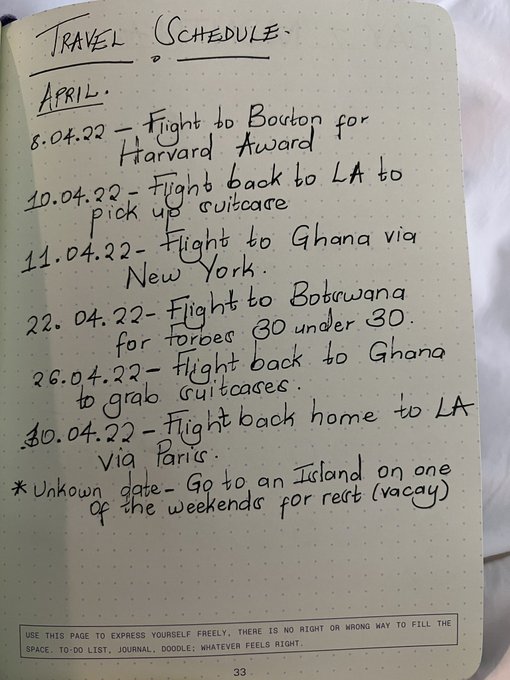 TRAVEL SCHEDULE.
APRIL.
8.04.22 – Flight to Boston for
Harvard Award
10.04.22 – Flight back to LA to
pick up suitcase
11.04.22 – Flight to Ghana via
New York.
22. 04. 22 – Flight to Botswana
for Forbes 30 under 30.
26.04.22 – Flight back to Ghana
to grab suitcases.
30.04.22 – Flight back home to LA
via Paris.
* Unkown date – Go to an Island on one
of the weekends for rest (vacay)
USE THIS PAGE TO EXPRESS YOURSELF FREELY, THERE IS NO RIGHT OR WRONG WAY TO FILL THE
SPACE. TO-DO LIST, JOURNAL, DOODLE; WHATEVER FEELS RIGHT.
33